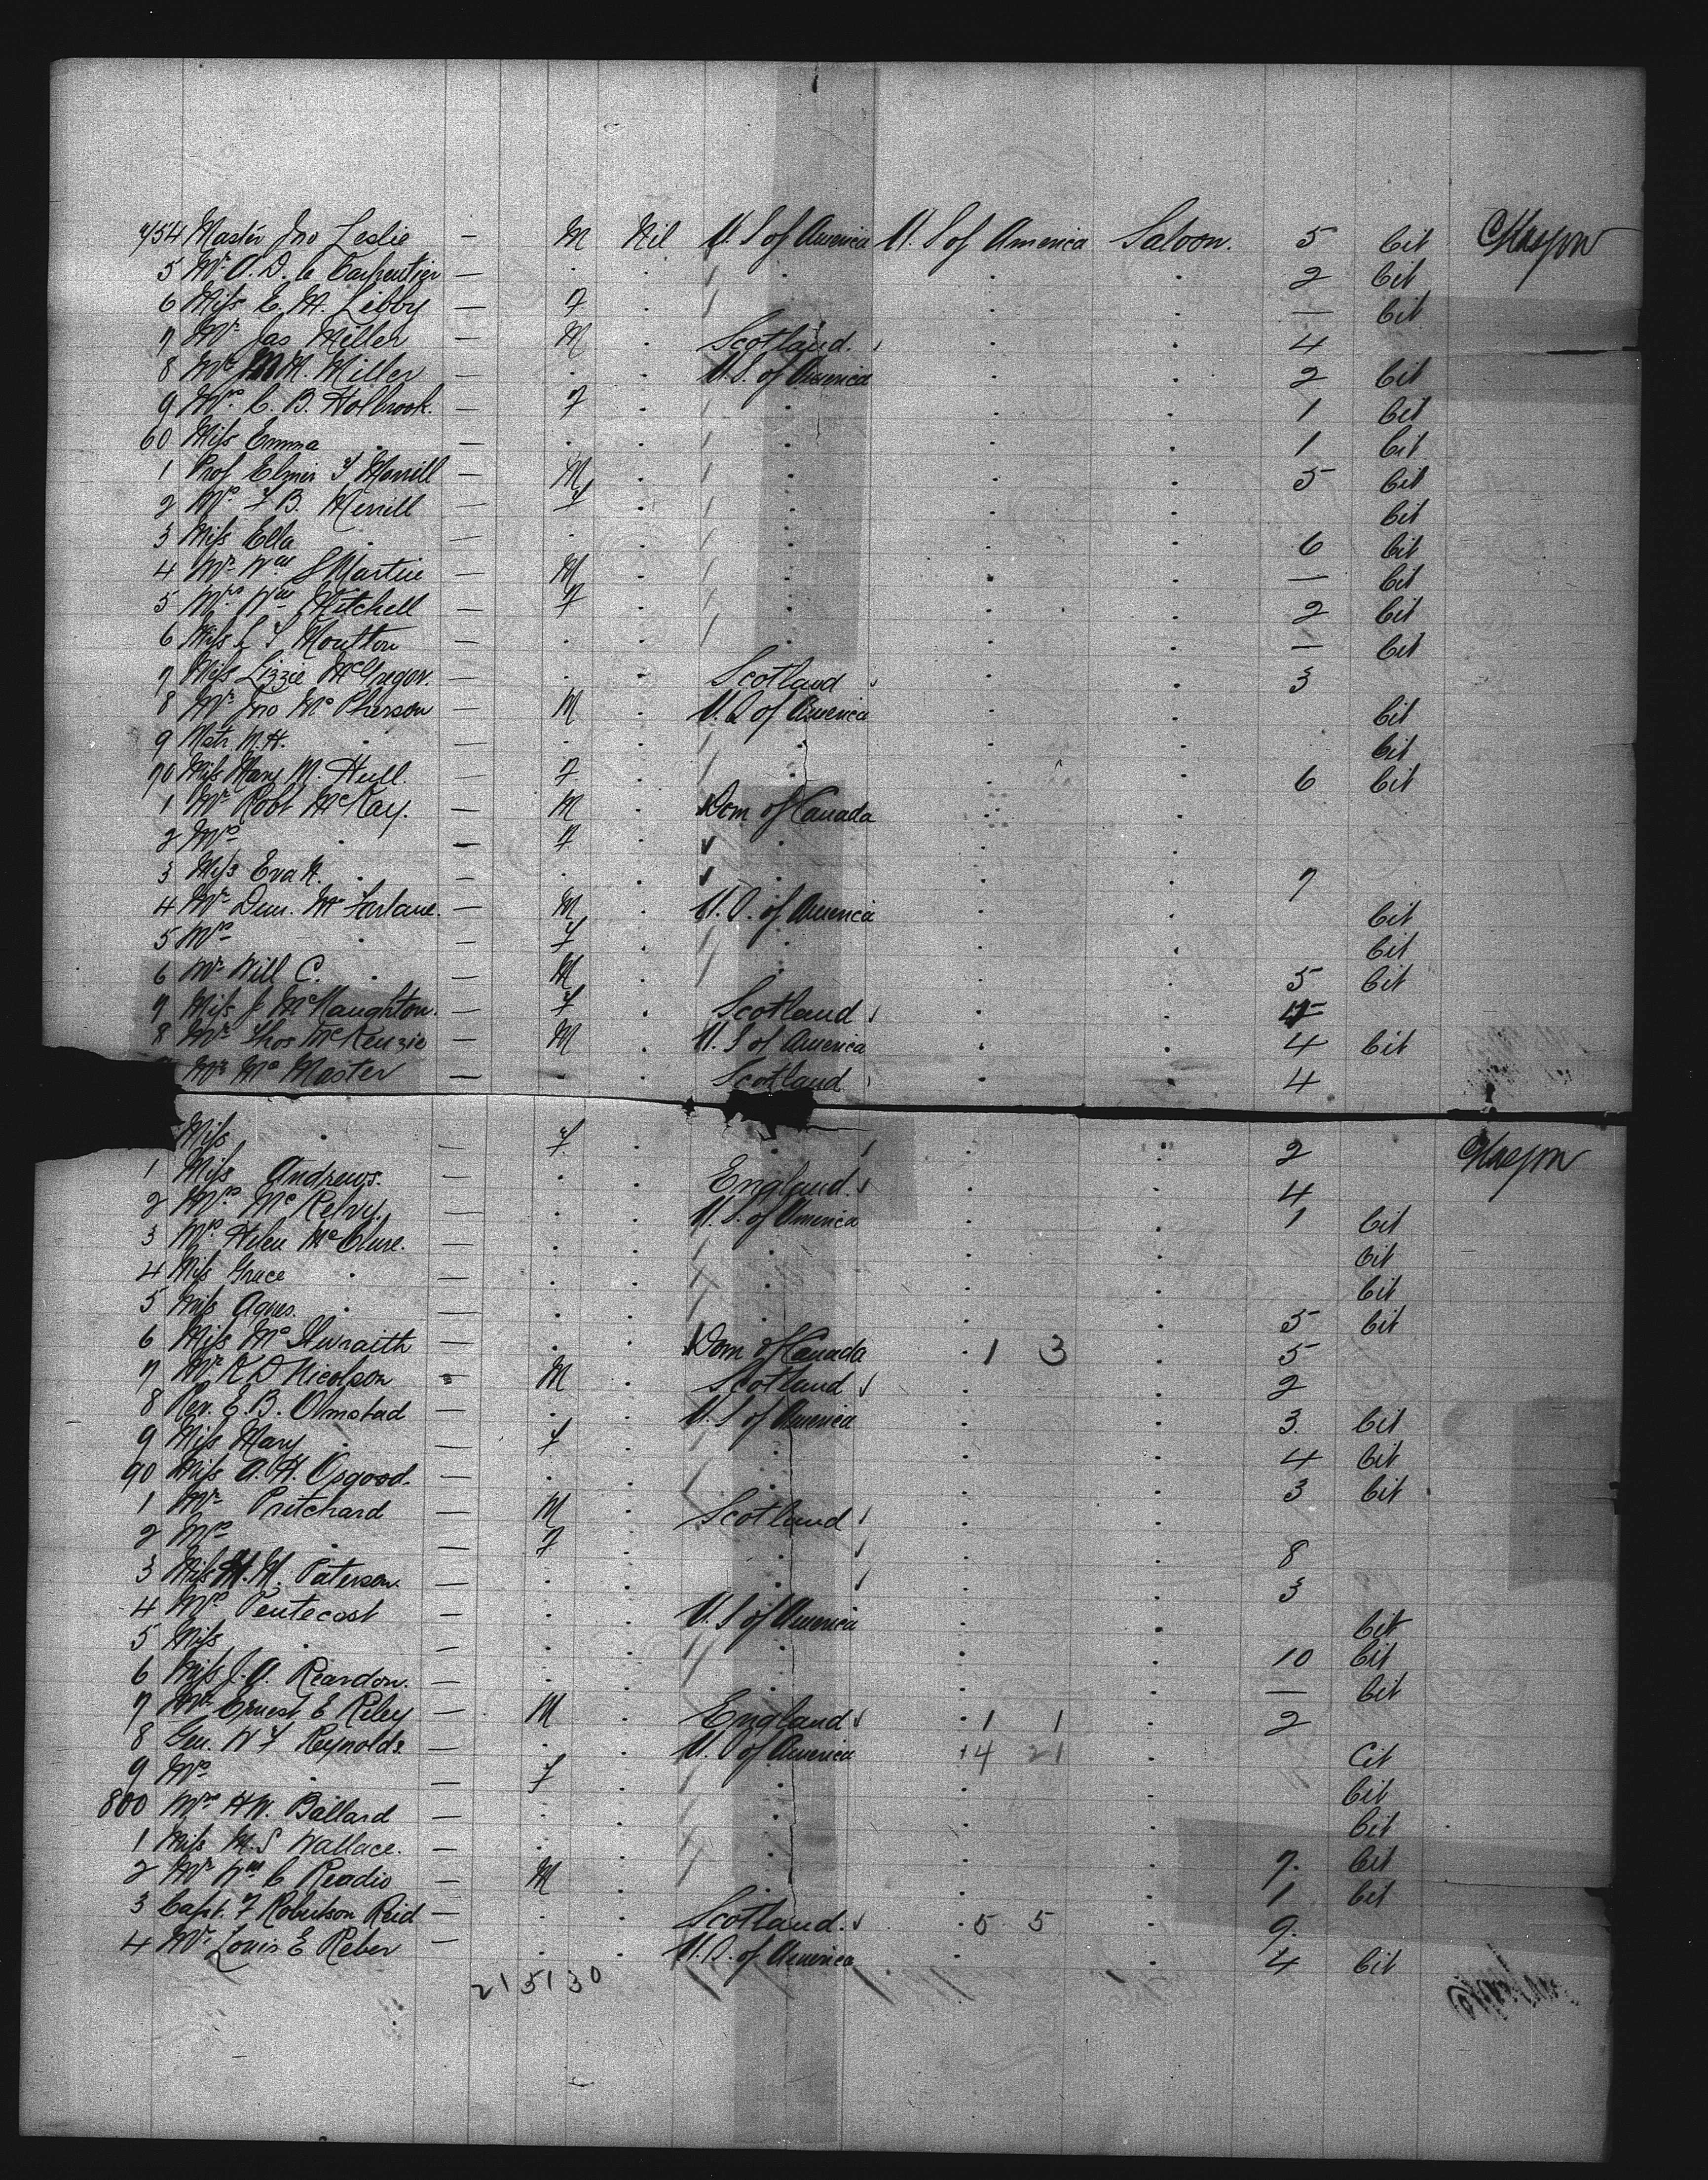 754 Master Jno Leslie — M Nil U.S of America U.S of America Saloon. 5 Cit Glasgow
5 Mr O. D. le Carpentier — . . / . . . 2 Cit
6 Miss E. M. Libby — F . / . . — Cit
7 Mr Jas Miller — M . Scotland. . . 4
8 Mr M. Miller — . . U.S. of America . . 2 Cit
9 Mrs C. B. Holbrook. — F . / . . . 1 Cit
60 Miss Emma . — . . / . . . 1 Cit
1 Prof Elmer T Merrill — M . / . . . 5 Cit
2 Mrs F B. Merrill — F . / . . . Cit
3 Miss Ella . — . . / . . . 6 Cit
4 Mr Wm S Martin — M . / . . . — Cit
5 Mrs Wm Mitchell — F . / . . . 2 Cit
6 Miss L F Moulton — . . / . . . — Cit
7 Miss Lizzie McGregor. — . . Scotland . . 3
8 Mr Jno McPherson — M . U.S of America . . Cit
9 Mstr M. H. . — . . / . . . Cit
70 Miss Mary M. Hull. — F . / . . . 6 Cit
1 Mr Robt McKay. — M . Dom of Canada . .
2 Mrs . — F . . . .
3 Miss Eva H. . — . . . . . 7
4 Mr Dun. McFarlane. — M . U.S. of America . . Cit
5 Mrs . — F . / . . . Cit
6 Mr Will C. . — M . / . . . 5 Cit
7 Miss J McNaughton. — F . Scotland . .
8 Mr Thos McKenzie — M . U.S of America . . 4 Cit
Mr McMaster — . . Scotland . . 4
Miss . — F . . . . 2 Glasgow
1 Miss Andrews. — . . England. . . 4
2 Mrs McKelvy. — . . U.S. of America . . 1 Cit
3 Mrs Helen McClure. — . . / . . . Cit
4 Miss Grace . — . . / . . . Cit
5 Miss Agnes. . — . . / . . . 5 Cit
6 Miss McIlwraith — . . Dom of Canada . 1 3 . 5
7 Mr K D Nicolson M . Scotland . . 2
8 Rev. E. B. Olmstad — . . U.S of America . . 3. Cit
9 Miss Mary . — F . / . . . 4 Cit
90 Miss A. H. Osgood. — . . / . . . 3 Cit
1 Mr Pritchard — M . Scotland . .
2 Mrs . — F . . . . 8
3 Miss M. Paterson. — . . . . . 3
4 Mrs Pentecost — . . U.S of America . . Cit
5 Miss . — . . / . . . 10 Cit
6 Miss J. A. Reardon. — . . / . . . — Cit
7 Mr Ernest E Riley — M . England . 1 1 . 2
8 Gen. W F Reynolds. — . . U.S of America 14 21 . Cit
9 Mrs . — F . / . . . Cit
800 Mrs H W. Ballard — . . / . . . Cit
1 Miss M. S Wallace. — . . / . . . 7. Cit
2 Mr Wm C Readio — M . / . . . 1 Cit
3 Capt. F Robertson Reid — . . Scotland. . 5 5 . 9.
4 Mr Louis E Reber — . . U.S. of America . . 4 Cit
21 51 30